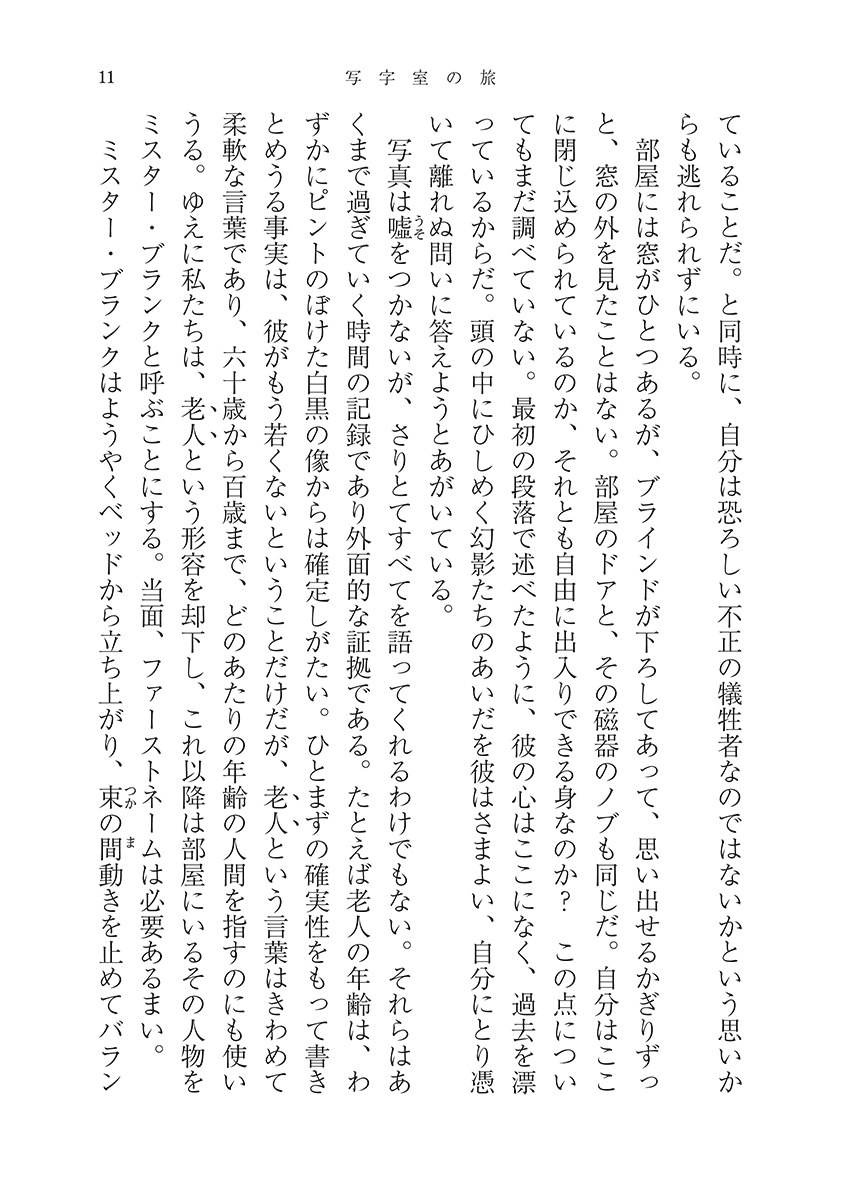 11
写字室の旅
ていることだ。と同時に、自分は恐ろしい不正の犠牲者なのではないかという思いか
らも逃れられずにいる。
部屋には窓がひとつあるが、ブラインドが下ろしてあって、思い出せるかぎりずっ
と、窓の外を見たことはない。部屋のドアと、その磁器のノブも同じだ。自分はここ
に閉じ込められているのか、それとも自由に出入りできる身なのか？　この点につい
てもまだ調べていない。最初の段落で述べたように、彼の心はここになく、過去を漂
っているからだ。頭の中にひしめく幻影たちのあいだを彼はさまよい、自分にとり憑
いて離れぬ問いに答えようとあがいている。
写真は嘘うそをつかないが、さりとてすべてを語ってくれるわけでもない。それらはあ
くまで過ぎていく時間の記録であり外面的な証拠である。たとえば老人の年齢は、わ
ずかにピントのぼけた白黒の像からは確定しがたい。ひとまずの確実性をもって書き
とめうる事実は、彼がもう若くないということだけだが、老人という言葉はきわめて
柔軟な言葉であり、六十歳から百歳まで、どのあたりの年齢の人間を指すのにも使い
うる。ゆえに私たちは、老人という形容を却下し、これ以降は部屋にいるその人物を
ミスター・ブランクと呼ぶことにする。当面、ファーストネームは必要あるまい。
ミスター・ブランクはようやくベッドから立ち上がり、束つかの間ま動きを止めてバラン